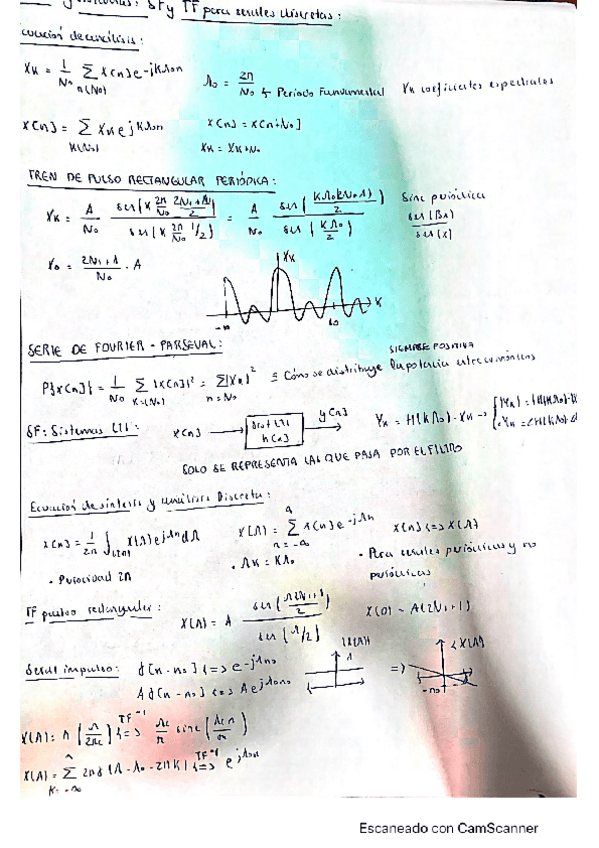 SF y TF para señales discretas:
ecuación de análisis:
X_K = 1/N₀ Σ_{n(N₀)} x[n] e^{-jKΛ₀n}   Λ₀ = 2π/N₀ ↳ Periodo Fundamental   X_K coeficientes espectrales
x[n] = Σ_{K(N₀)} X_K e^{jKΛ₀n}   x[n] = x[n+N₀]
X_K = X_{K+N₀}
TREN DE PULSO RECTANGULAR PERIÓDICA:
X_K = A/N₀ · sen(K 2π/N₀ (2N₁+1)/2) / sen(K 2π/N₀ 1/2) = A/N₀   Sinc periódica
sen(Bx)/sen(x)
X₀ = (2N₁+1)/N₀ · A
X_K
K
-10   10
SERIE DE FOURIER - PARSEVAL:
SIEMPRE POSITIVA
P{x[n]} = 1/N₀ Σ |x[n]|² = Σ|X_K|² = Cómo se distribuye la potencia entre armónicos
SF: Sistemas LTI:   x[n] → h[n] → y[n]   Y_K = H(KΛ₀)·X_K →
SOLO SE REPRESENTA LAS QUE PASA POR EL FILTRO
Ecuación de síntesis y análisis Discreta:
x[n] = 1/2π ∫_{(2π)} X(Λ) e^{jΛn} dΛ   X(Λ) = Σ_{n=-∞}^{∞} x[n] e^{-jΛn}   x[n] <=> X(Λ)
· Periocidad 2π   · Λ_K = KΛ₀   · Para señales periódicas y no
periódicas
TF pulso rectangular:   X(Λ) = A sen(Λ(2N₁+1)/2) / sen(Λ/2)   X(0) = A(2N₁+1)
Señal impulso:   δ[n-n₀] <=> e^{-jΛn₀}   |X(Λ)|   =>   ∠X(Λ)
X(Λ): Π(Λ/2Λc) <=> Λc/π sinc(Λc n/π)
TF⁻¹
X(Λ) = Σ_{K=-∞}^{∞} 2πδ(Λ-Λ₀-2πK) <=> e^{jΛ₀n}
TF⁻¹
Escaneado con CamScanner